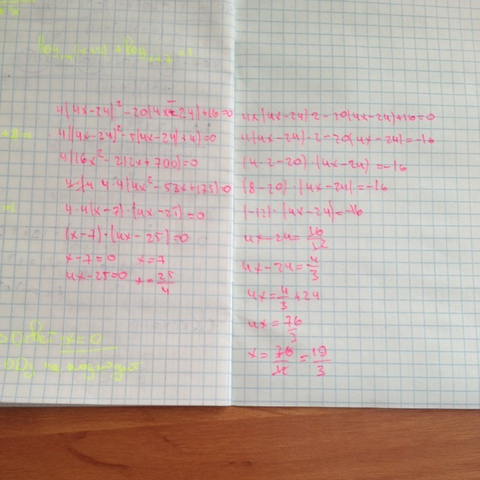 4(4x-24)²-20(4x-24)+16=0
4((4x-24)²-5(4x-24)+4)=0
4(16x²-212x+700)=0
4·4(4x²-53x+175)=0
4·4(x-7)·(4x-25)=0
(x-7)·(4x-25)=0
x-7=0 x=7
4x-25=0 x=25/4
4x(4x-24)·2-20(4x-24)+16=0
4(4x-24)·2-20(4x-24)=-16
(4·2-20)·(4x-24)=-16
(8-20)·(4x-24)=-16
(-12)·(4x-24)=-16
4x-24=16/12
4x-24=4/3
4x=4/3+24
4x=76/3
x=76/12=19/3